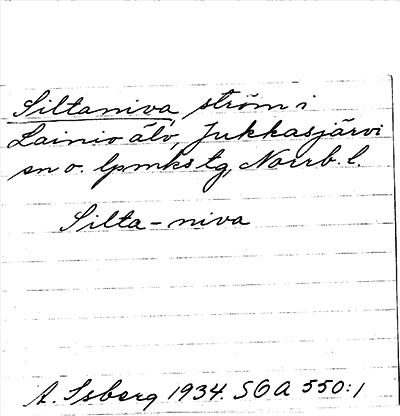 Siltaniva, ström i
Lainio älv, Jukkasjärvi
sn o. lpmkstg, Norrb. l.
Silta-niva
A. Isberg 1934. SOA 550:1